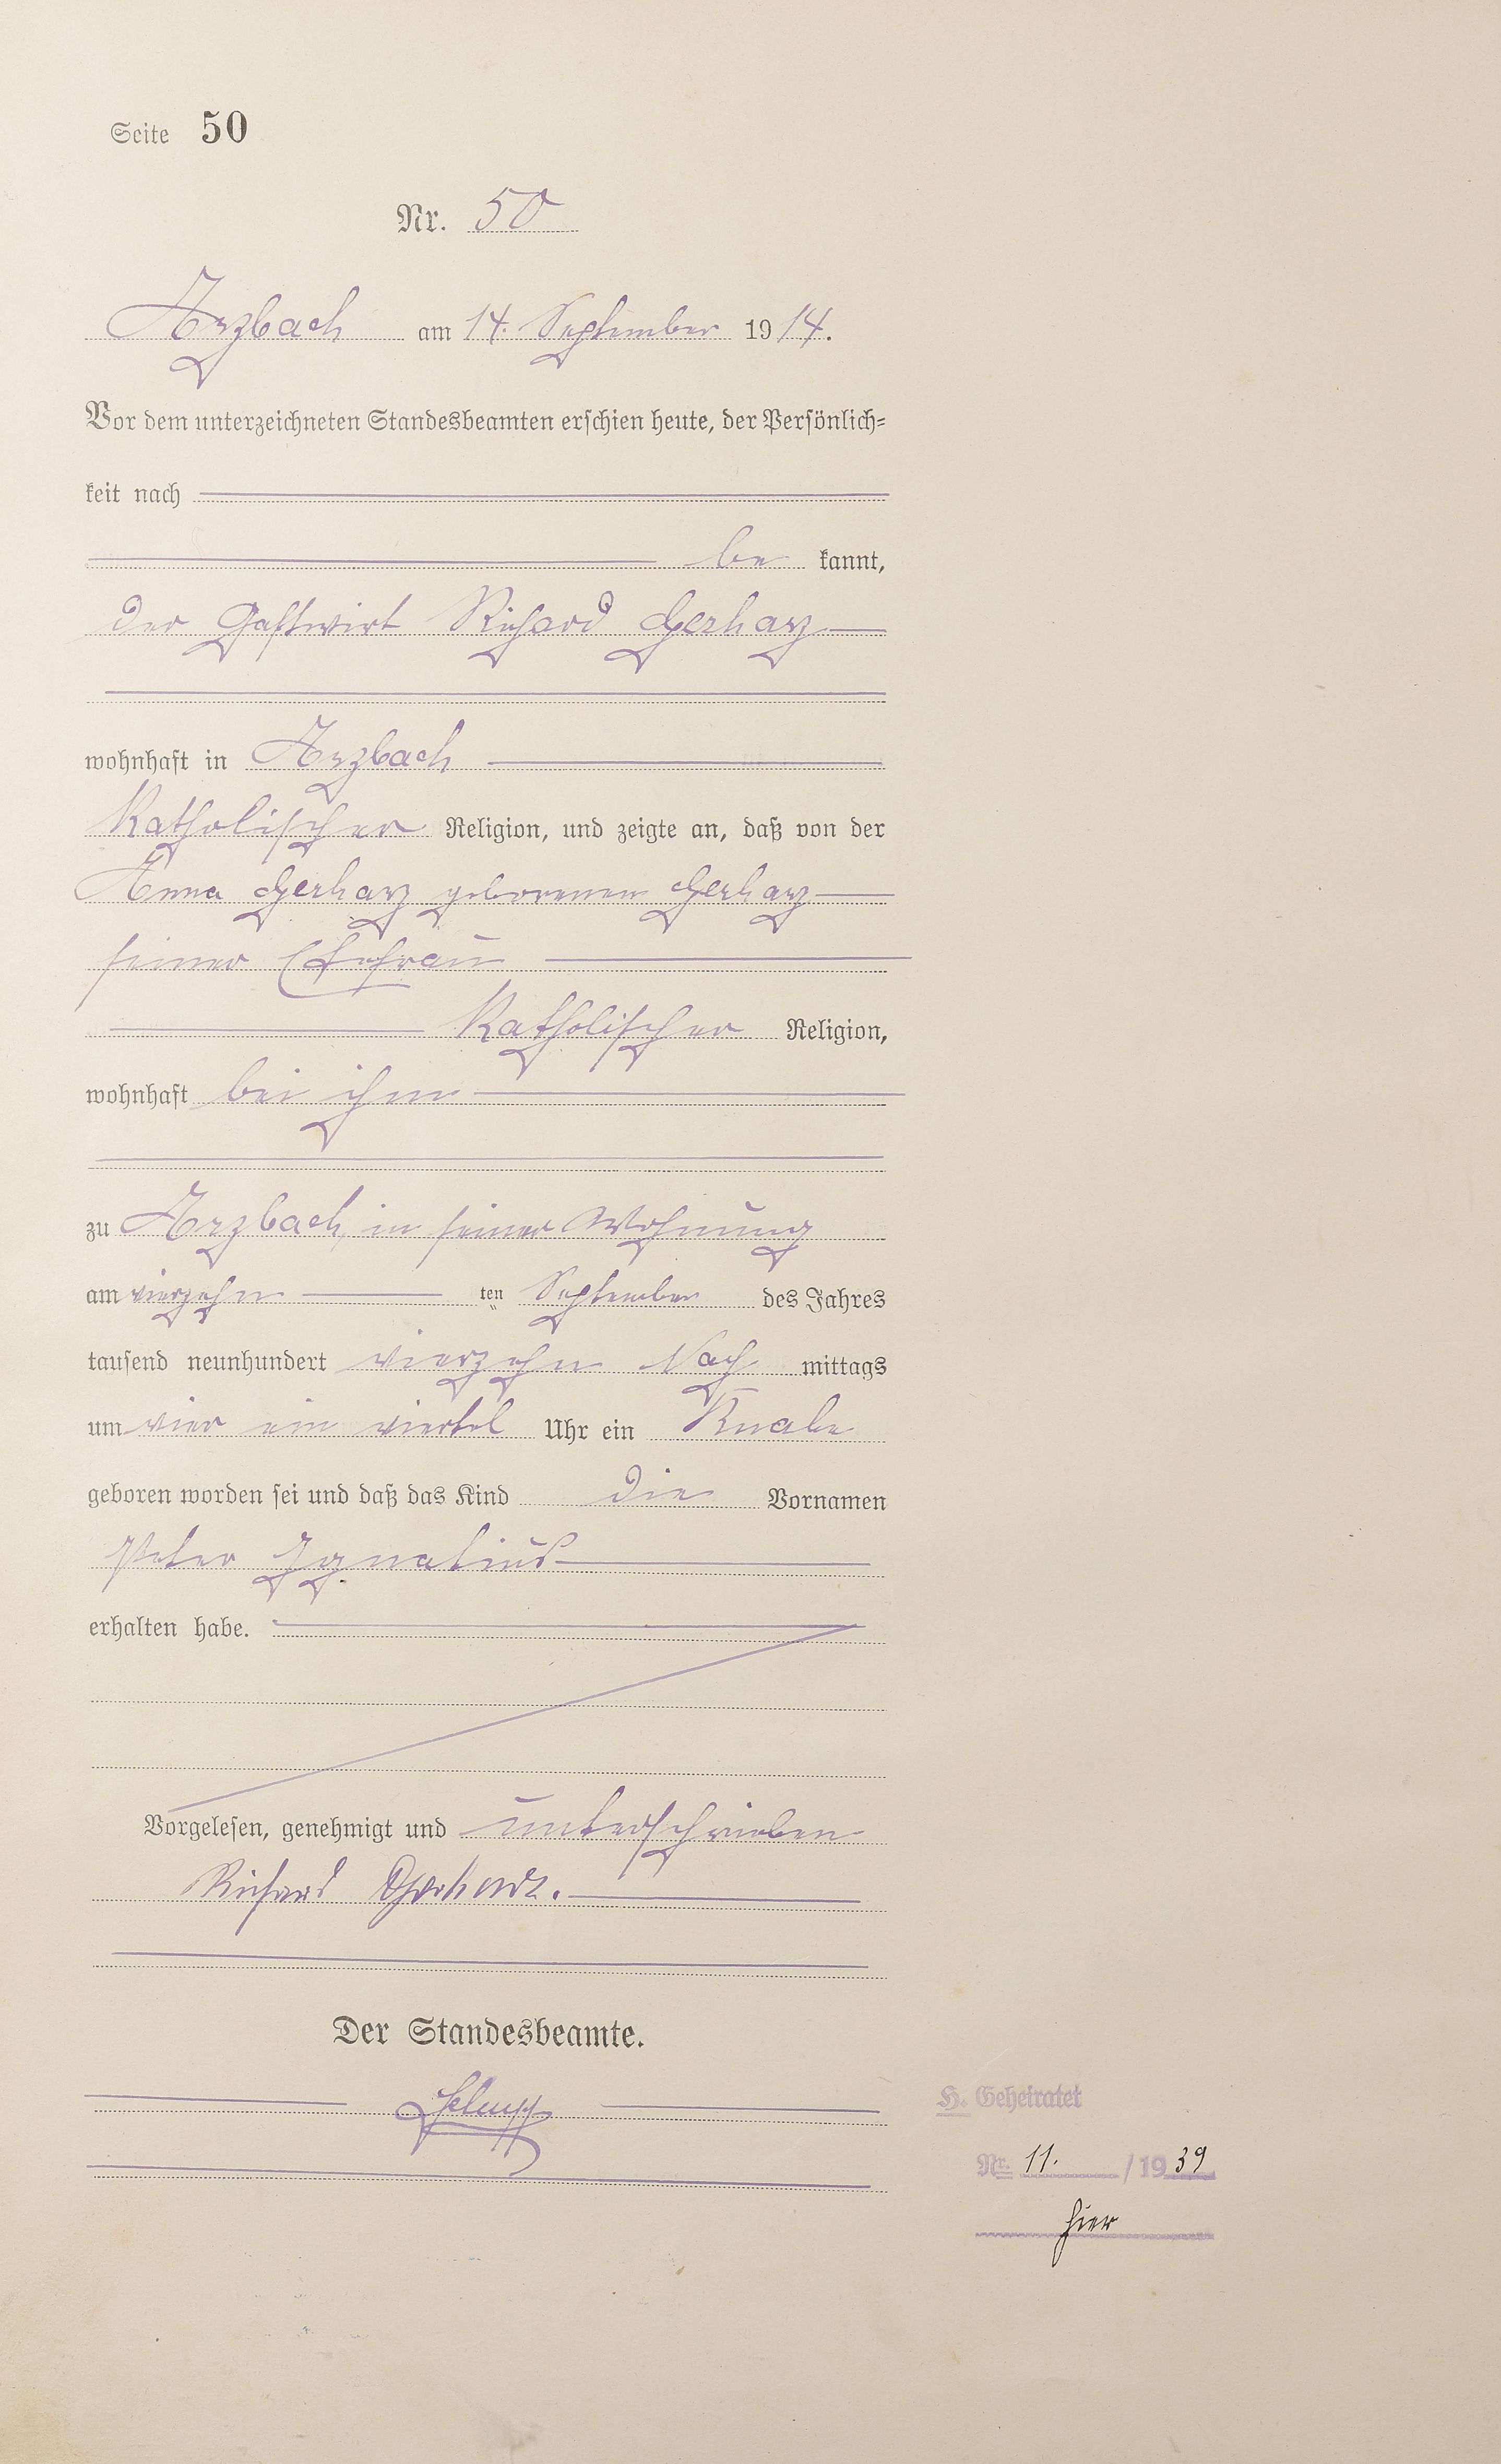 Seite 50
Nr. 50
Arzbach am 14. September 1914.
Vor dem unterzeichneten Standesbeamten erschien heute, der Persönlich-
keit nach
be kannt,
der Gastwirt Richard Gerharz
wohnhaft in Arzbach
Katholischer Religion, und zeigte an, daß von der
Anna Gerharz geborenen Gerharz
seiner Ehefrau
Katholischer Religion,
wohnhaft bei ihm
zu Arzbach, in seiner Wohnung
am vierzehn ten September des Jahres
tausend neunhundert vierzehn Nach mittags
um vier ein viertel Uhr ein Knabe
geboren worden sei und daß das Kind die Vornamen
Peter Ignatius
erhalten habe.
Vorgelesen, genehmigt und unterschrieben
Richard Gerharz.
Der Standesbeamte.
H. Geheiratet
Nr. 11. / 1939
hier